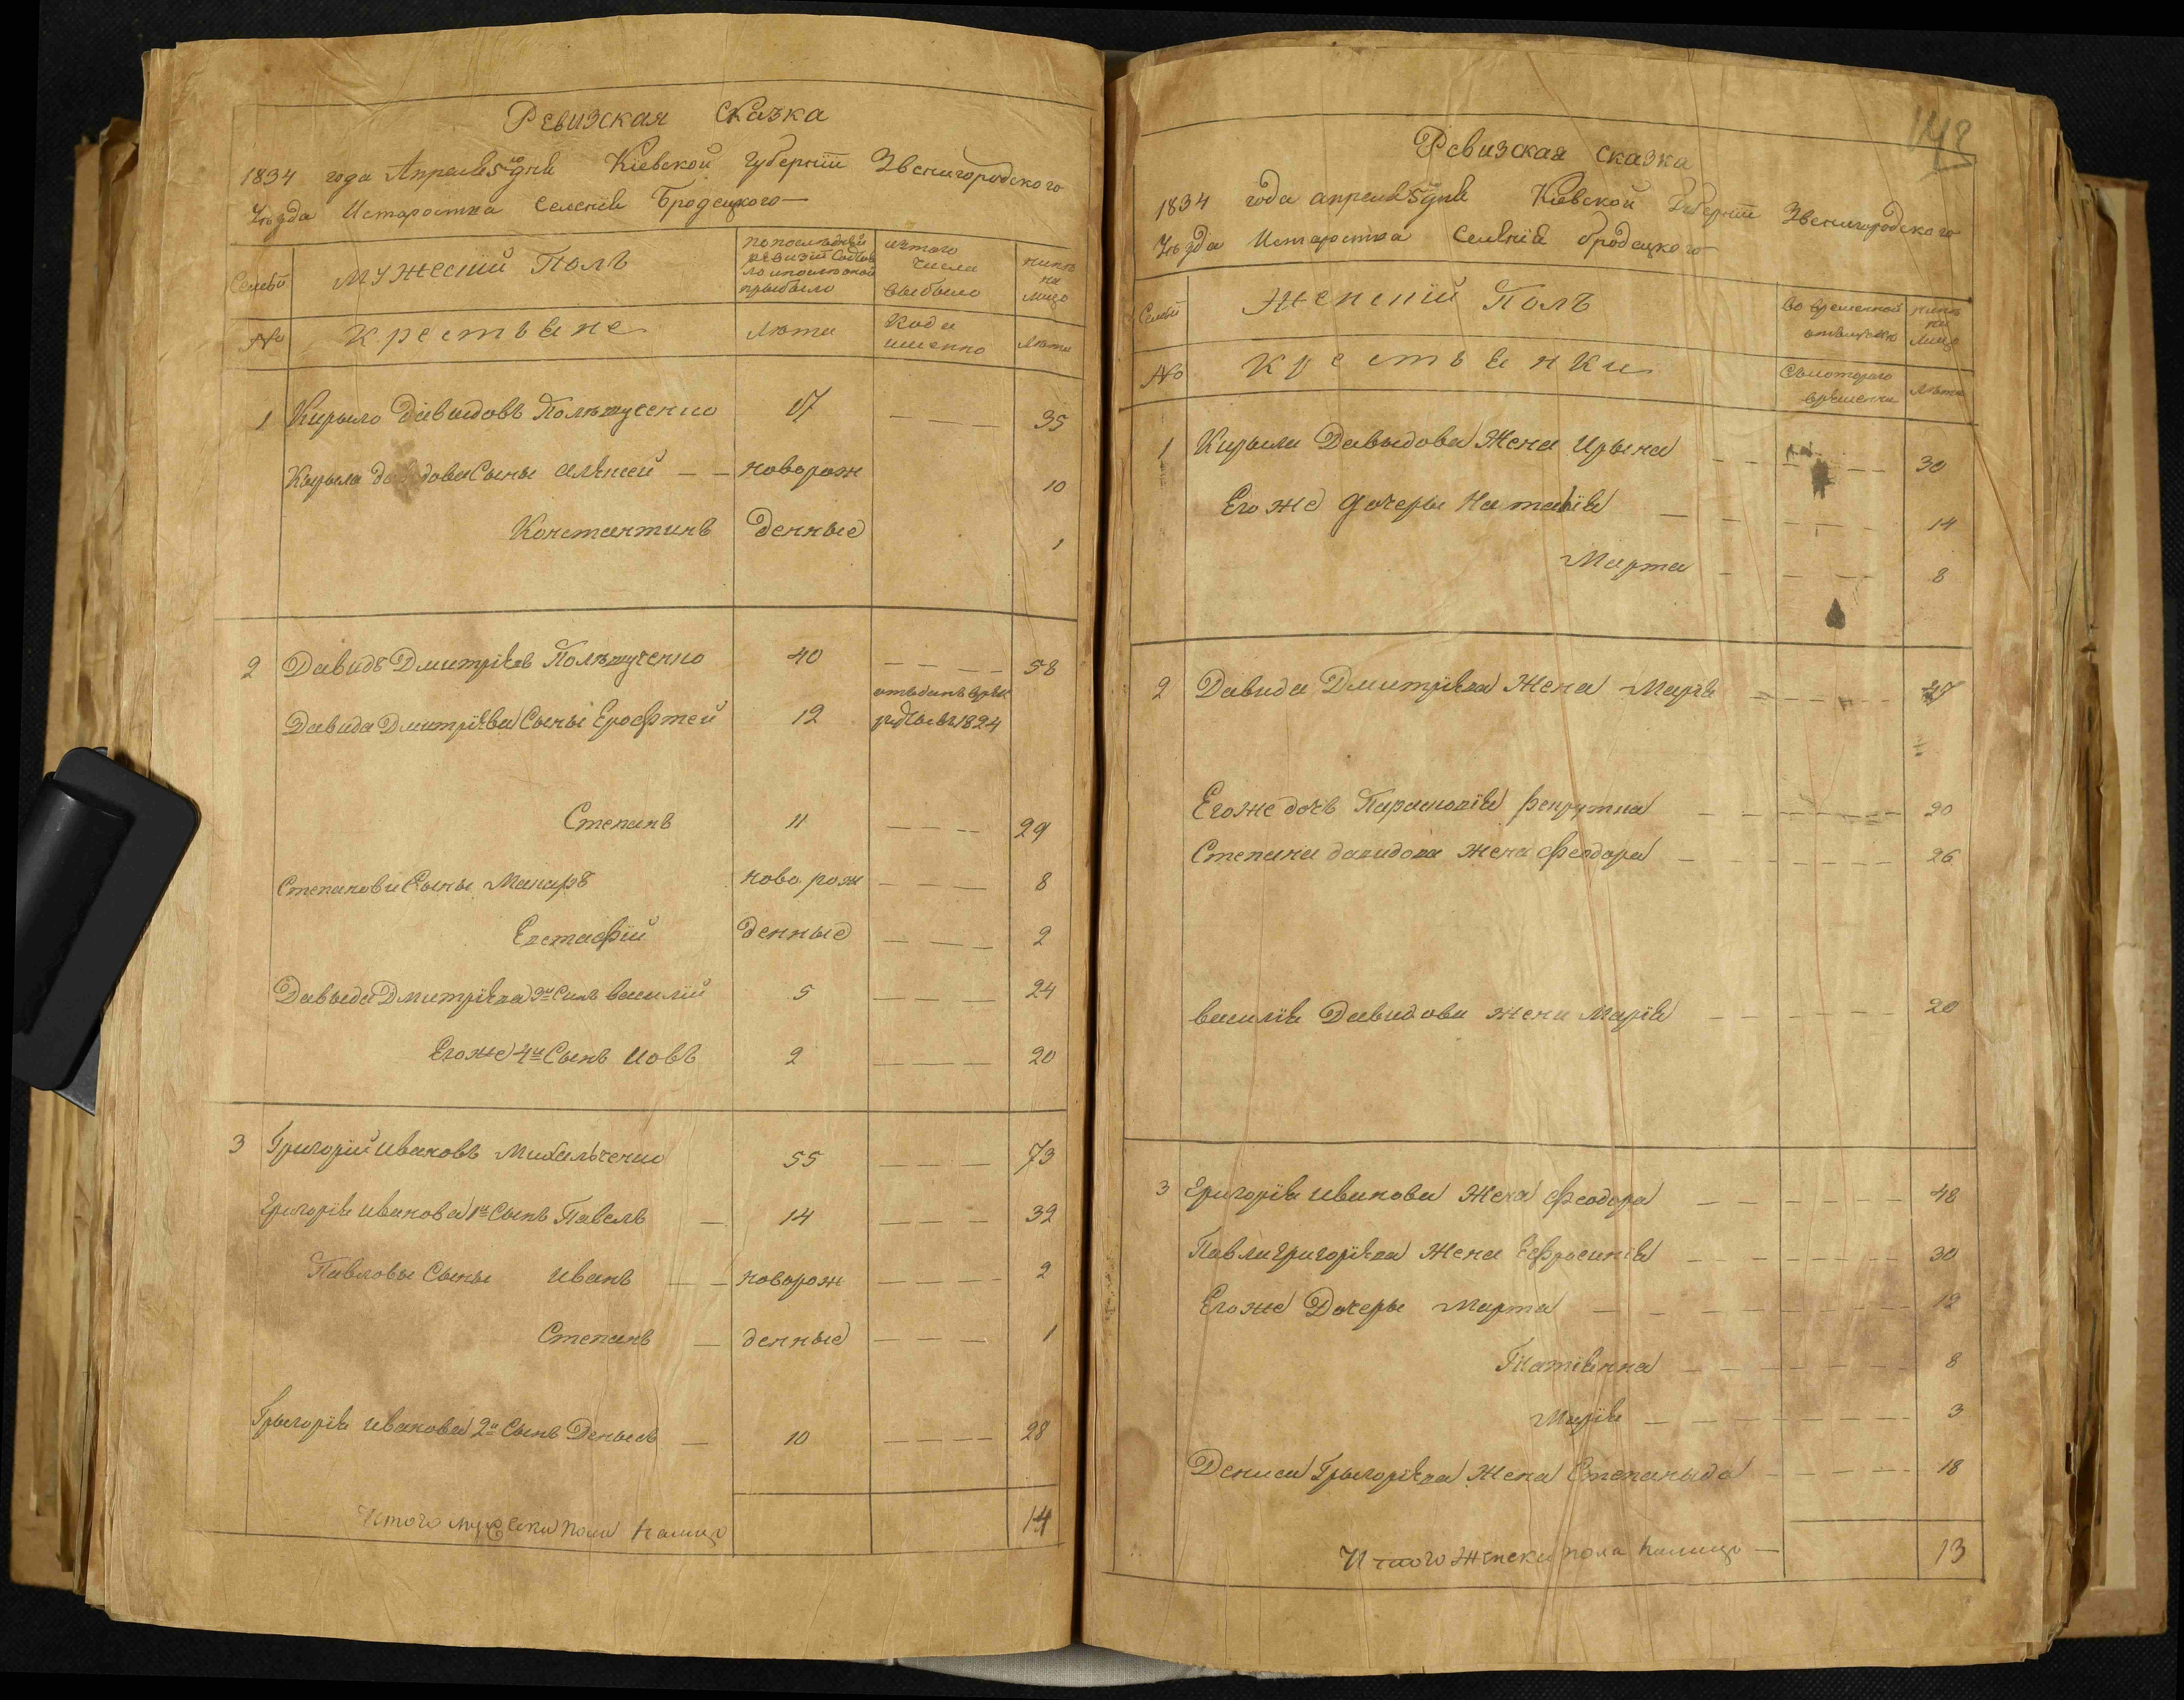 Ревизская Сказка
1834 года Апреля 5го дня Кіевской Губерніи Звенигородского
Уѣзда Истароства Селенія Бродецкого
Семьи
Мужескій Полъ
по последней
ревизіи состоя
ло и после оной
прыбыло
изъ того
числа
выбыло
нынѣ
на
лицо
№
Крестьяне
Лѣта
Когда
именно
Лѣта
1 Кирыло Давыдовъ Полѣщученко 17 35
Кирыла Давыдова Сыны Алѣксей новорож 10
Константинъ денные 1
2 Давидъ Дмитріевъ Полѣщученко 40 58
Давида Дмитріева Сыны Ерофтей 12 отъданъ врек
руты въ 1824
Степанъ 11 29
Степановы Сыны Макаръ ново рож 8
Евстафій денные 2
Давыда Дмитріева 3й Сынъ василій 5 24
Егоже 4й Сынъ Иовъ 2 20
3 Григорій Ивановъ Михальченко 55 73
Григорія Иванова 1й Сынъ Павелъ 14 32
Павловы Сыны Иванъ новорож 2
Степанъ денные 1
Грыгорія Иванова 2й Сынъ Денысъ 10 28
Итого мужеска пола налицо 14
148
Ревизская сказка
1834 года апреля 5го дня Кіевской Губерніи Звенигородского
Уѣзда Истароства Селѣнія бродецкого
Семьи
Женскій Полъ
Во временной
отлучкѣ
нынѣ
на
лицо
№
Крестьянки
Съкоторого
времени
Лѣта
1 Кирыла Давыдова Жена Ирына 30
Его же дочеры Наталія 14
Марта 8
2 Давида Дмитріева Жена Марія 47
Егоже дочь Параскевія рекрутка 20
Степана давидова жена Феодора 26
василія Давидова жена Марія 20
3 Григорія Иванова Жена Феодора 48
Павла Григоріева Жена Ефросинія 30
Егоже Дочеры Марта 12
Татіянна 8
Марія 3
Дениса Грыгоріева Жена Степаныда 18
Итого женска пола налицо 13